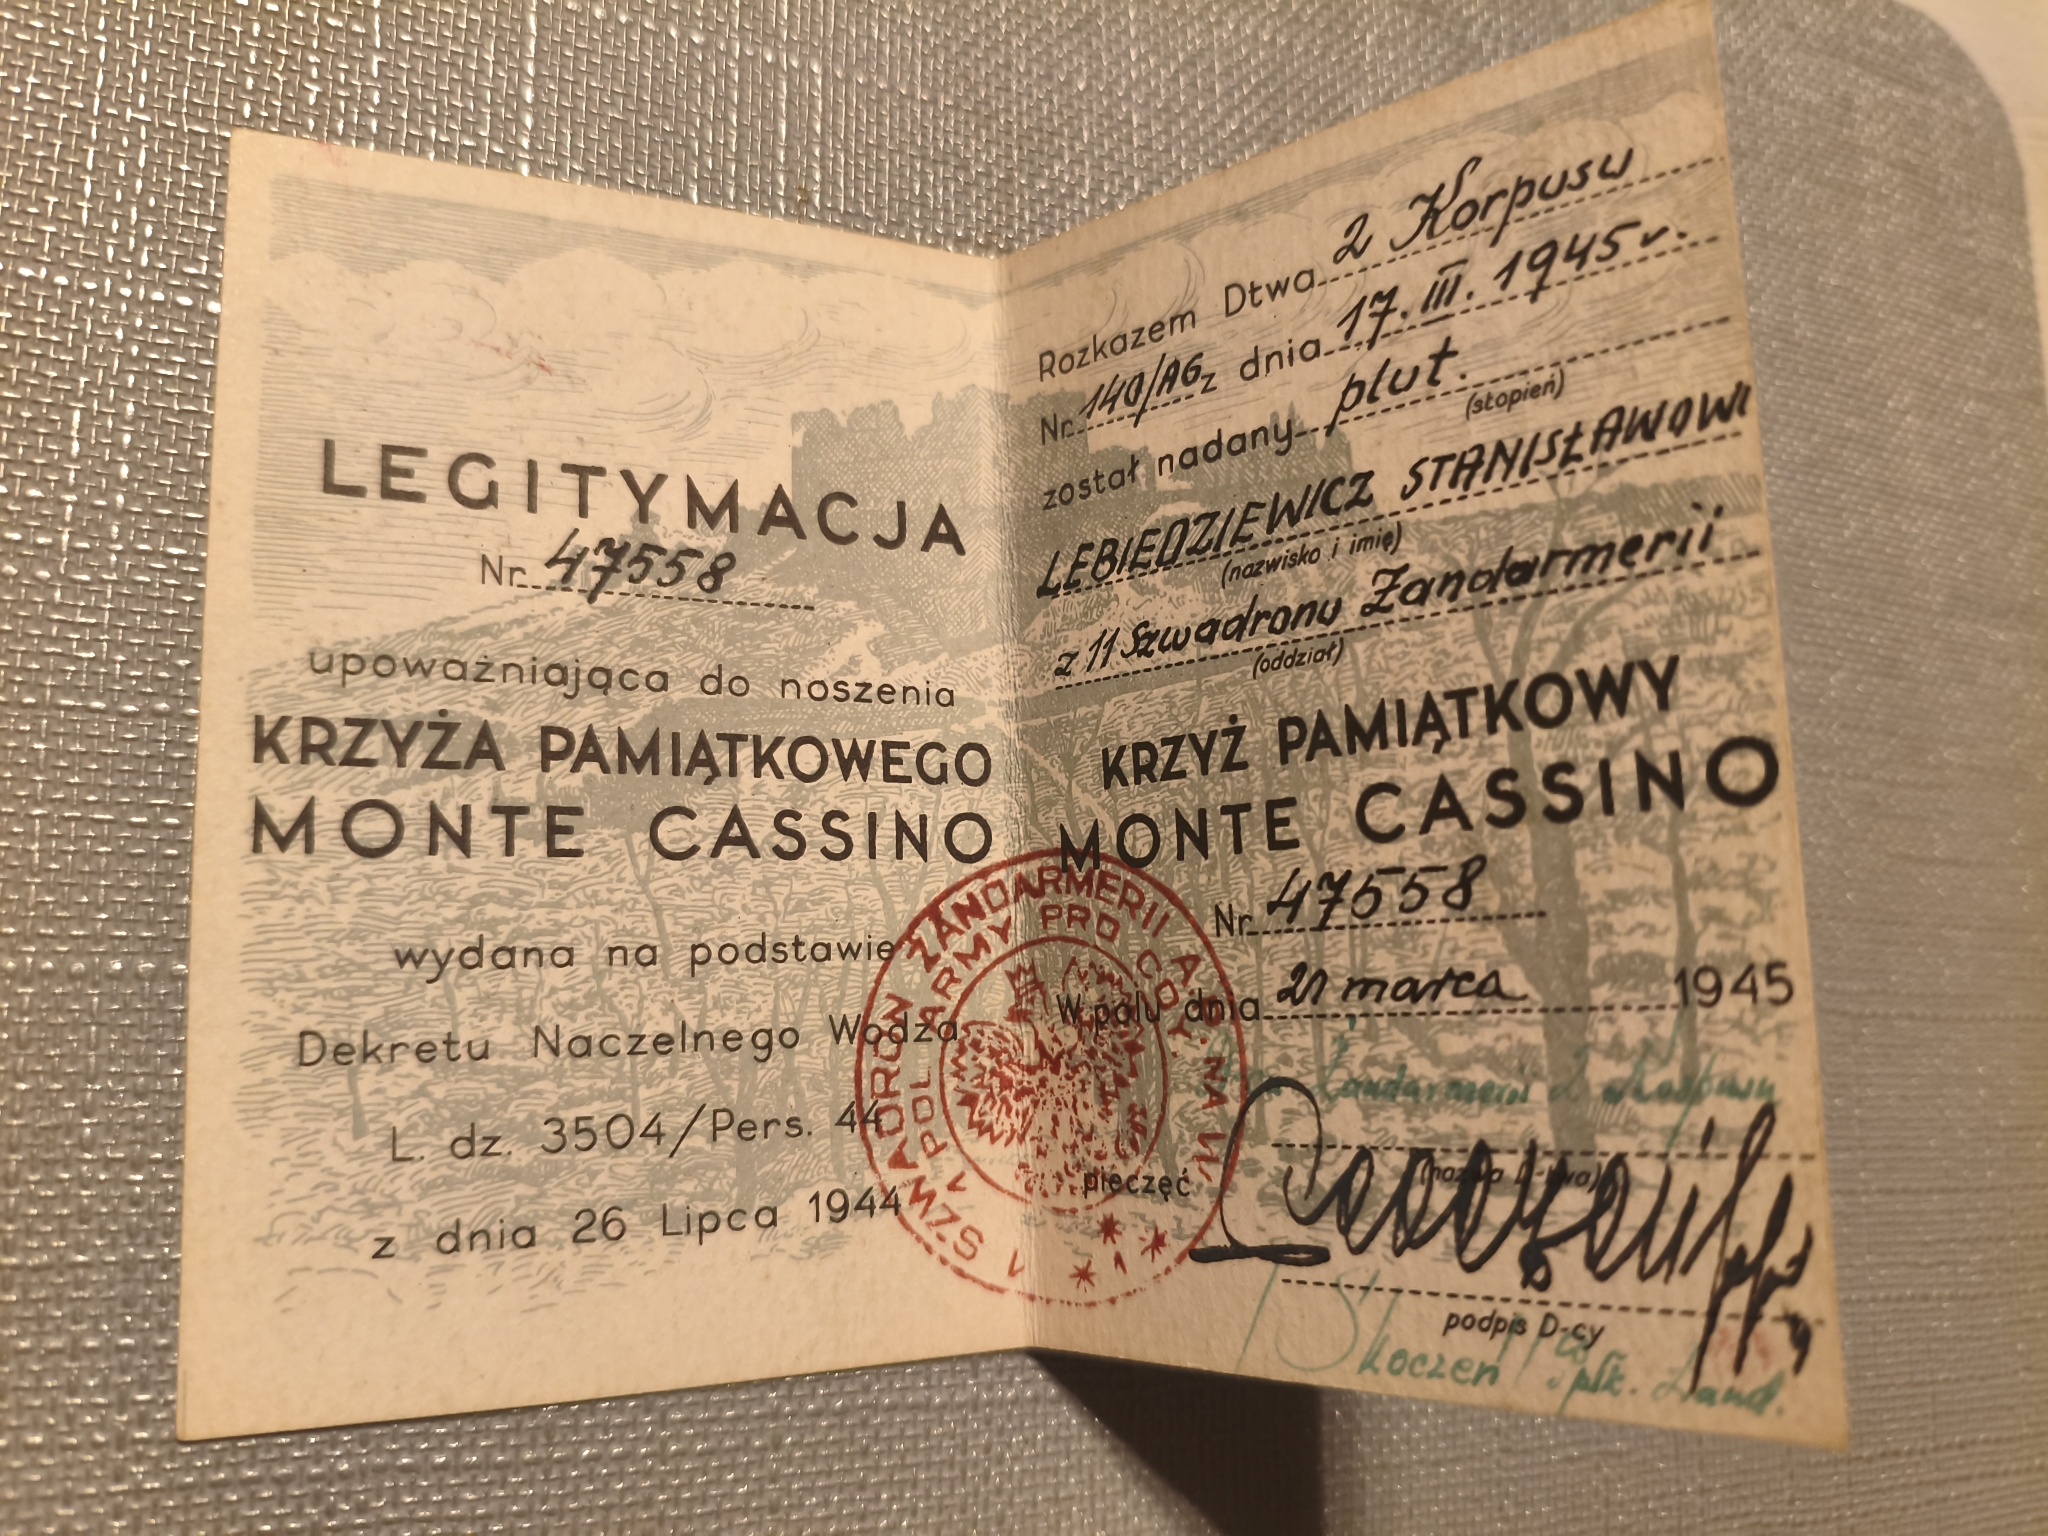 LEGITYMACJA
Nr. 47558
upoważniająca do noszenia
KRZYŻA PAMIĄTKOWEGO
MONTE CASSINO
wydana na podstawie
Dekretu Naczelnego Wodza
L. dz. 3504/Pers. 44
z dnia 26 Lipca 1944
Rozkazem Dtwa 2 Korpusu
Nr. 140/AG z dnia 17. III. 1945 r.
został nadany plut.
(stopień)
LEBIEDZIEWICZ STANISŁAWOWI
(nazwisko i imię)
z 11 Szwadronu Żandarmerii
(oddział)
KRZYŻ PAMIĄTKOWY
MONTE CASSINO
Nr. 47558
W polu dnia 21 marca 1945
Żandarmerii 2 Korpusu
(nazwa D-twa)
pieczęć
podpis D-cy
Skoczeń ppłk. Żand.
1 SZWADRON ŻANDARMERII A.P. NA W.
1 POL. ARMY PRO COY.